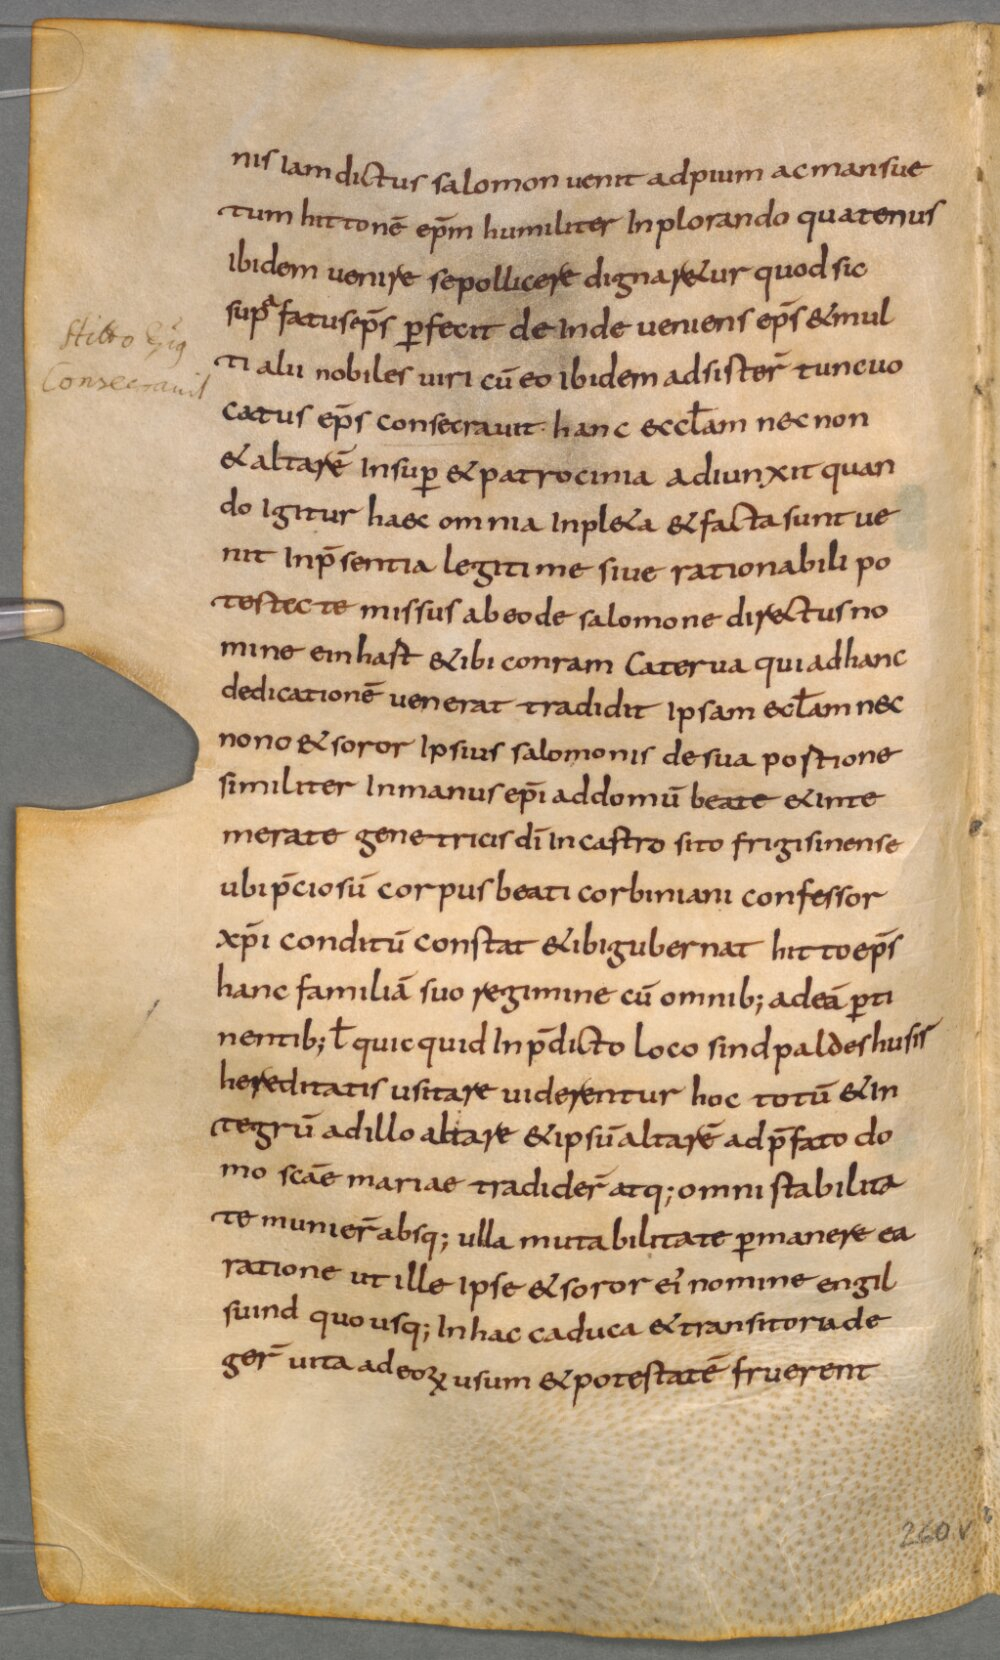 nis iam dictus salomon uenit ad pium ac mansue
tum hittonē ep̄m humiliter Inplorando quatenus
Ibidem uenire se pollicere dignar&ur quod sic
sup̲ᵃfatus ep̄s p̲fecit de Inde ueniens ep̄s & mul
ti alii nobiles uiri cū eo Ibidem adsister̄ tunc uo
catus ep̄s consecrauit hanc ęccl̄am nęc non
& altarē Insup̲ & patrocinia adiunxit quan
do Igitur haec omnia Inpl&a & facta sunt ue
nit In p̄sentia legitime siue rationabili po
testęc te missus ab eo de salomone directus no
mine einhast & ibi conram Caterua qui ad hanc
dedicationē uenerat tradidit Ipsam ęcl̄am nęc
nono & soror Ipsius salomonis de sua postione
similiter In manus ep̄i ad domū beate & inte
merate genetricis dī In castro sito frigisinense
ubi p̄ciosū corpus beati corbiniani confessor
xp̄i conditū constat & ibi gubernat hitto ep̄s
hanc familiā suo regimine cū omnib; ad eā p̲ti
nentib; ł quicquid In p̄dicto loco sindpaldeshusis
hereditatis usitare uiderentur hoc totū & In
tegrū ad illo altare & ipsū altarē ad p̄fato do
mo scāe mariae tradider̄ atq; omni stabilita
te munier̄ absq; ulla mutabilitate p̲manere ea
ratione ut ille Ipse & soror ei nomine engil
suind quo usq; In hac caduca & transitoria de
ger̄ uita ad eoꝝ usum & potestatē fruerent
Consecrauit
260v